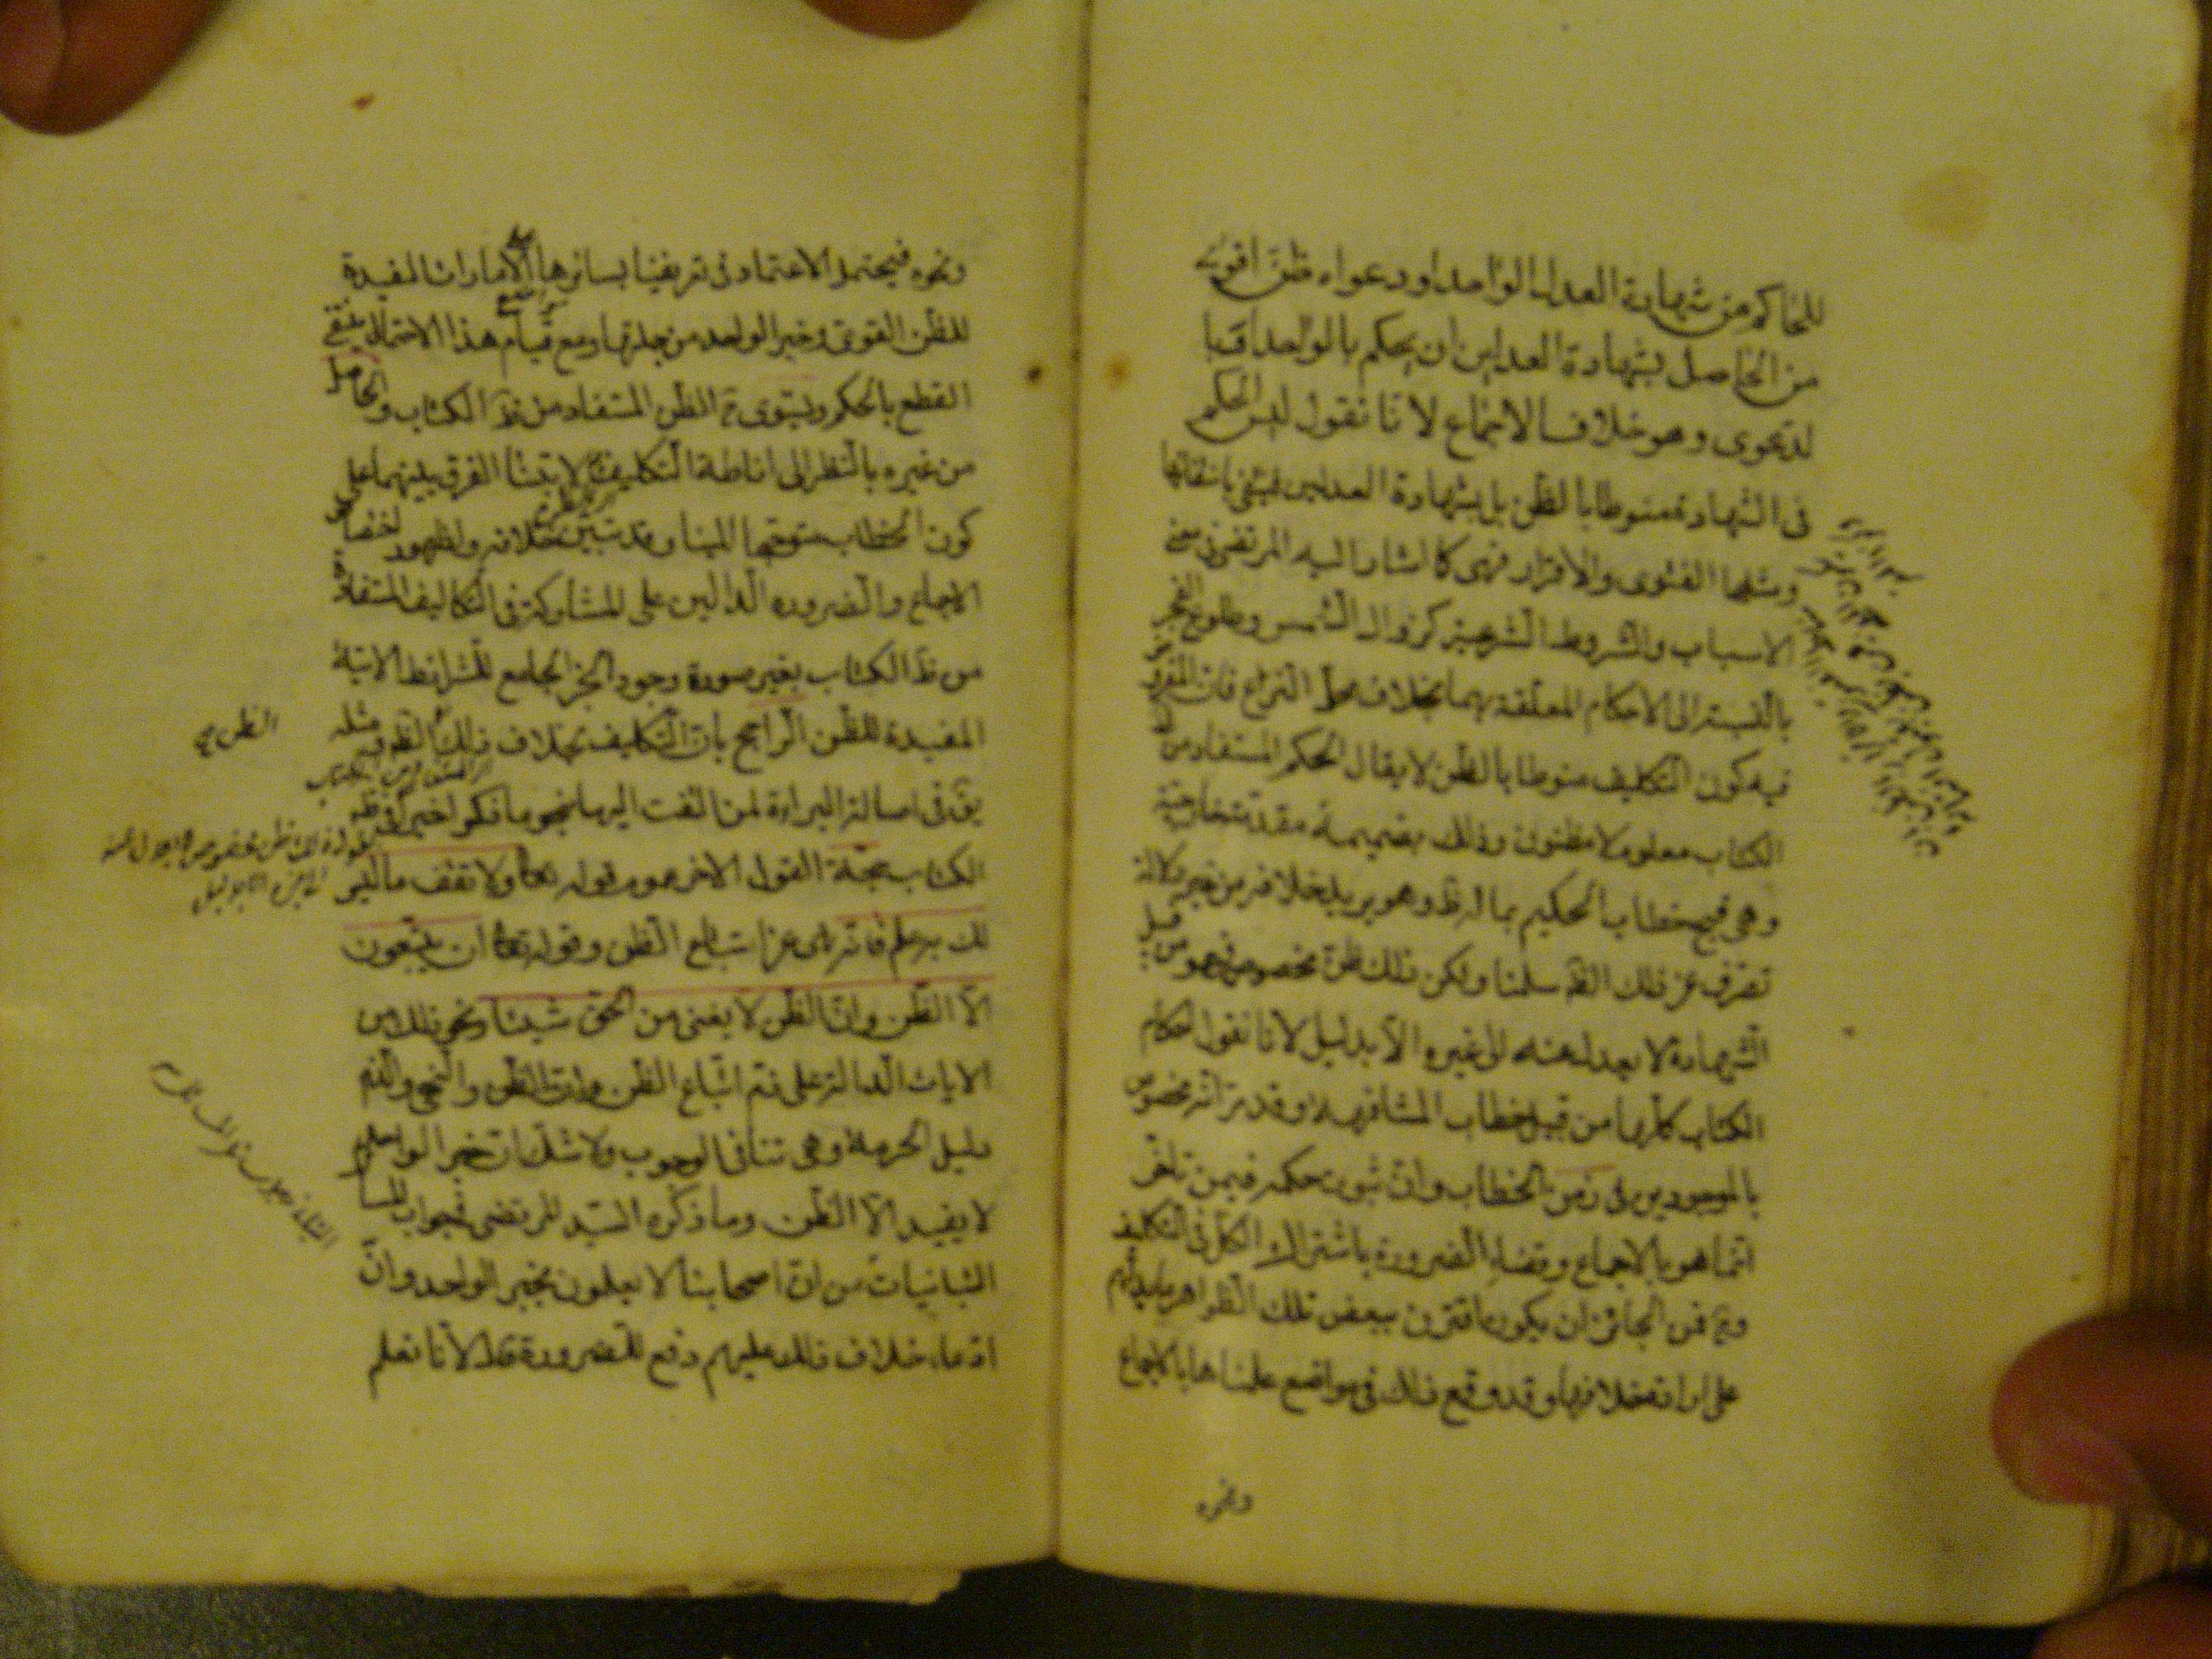 للحاكم من شهادة العدل الواحد او دعواه ظن اقوى
من الحاصل بشهادة العدلين ان يحكم بالواحد او با
لدعوى وهو خلاف الاجماع لانا نقول ليس الحكم
فى الشهادة منوطا بالظن بل بشهادة العدلين فينتفى بانتفائها
ومثلها الفتوى والاقرار فهى كما اشار اليه المرتضى رض فى معنى
الاسباب والشروط الشرعية كزوال الشمس وطلوع الفجر
بالنسبة الى الاحكام المعلقة بهما بخلاف محل النزاع فان المفروض
فيه كون التكليف منوطا بالظن لا يقال الحكم المستفاد من ظ
الكتاب معلوم لا مظنون وذلك بضميمة مقدمة خارجية
وهى قبح خطاب الحكيم بما له ظ وهو يريد خلافه من غير دلالة
تصرف عن ذلك الظ سلمنا ولكن ذلك ظن مخصوص فهو من قبيل
الشهادة لا يعدل عنه الى غيره الا بدليل لانا نقول احكام
الكتاب كلها من قبيل خطاب المشافهة وقد مر انه مخصوص
بالموجودين فى زمن الخطاب وان ثبوت حكمه فيمن تاخر
انما هو بالاجماع وقضاء الضرورة باشتراك الكل فى التكليف
وح فمن الجائز ان يكون قد اقترن ببعض تلك الظواهر ما يدلهم
على ارادة خلافها وقد وقع ذلك فى مواضع علمناها بالاجماع
ونحوه
ونحوه فيحتمل الاعتماد فى تعريفنا لسائرها على الامارات المفيدة
للظن القوى وخبر الواحد من جملتها ومع قيام هذا الاحتمال ينتفى
القطع بالحكم ويستوى ح الظن المستفاد من ظ الكتاب والحاصل
من غيره بالنظر الى اناطة التكليف به لابتناء الفرق بينهما على
كون الخطاب متوجها الينا وقد تبين خلافه ولظهور اختصاص
الاجماع والضرورة الدالين على المشاركة فى التكاليف المستفادة
من ظ الكتاب بغير صورة وجود الخبر الجامع للشرائط الاتية
المفيدة للظن الراجح بان التكليف بخلاف ذلك الظ ومثله
يق فى اصالة البراءة لمن التفت اليها بنحو ما ذكر اخيرا فى ظ
الكتاب حجة القول الاخر عموم قوله تعا ولا تقف ما ليس
لك به علم فانه نهى عن اتباع الظن وقوله تعا ان يتبعون
الا الظن وان الظن لا يغنى من الحق شيئا ونحو ذلك من
الايات الدالة على ذم اتباع الظن والنهى والذم
دليل الحرمة وهى تنافى الوجوب ولا شك ان خبر الواحد
لا يفيد الا الظن وما ذكره السيد المرتضى فى جواب المسائل
التبانيات من ان اصحابنا لا يعملون بخبر الواحد وان
ادعاء خلاف ذلك عليهم دفع للضرورة قال لانا نعلم